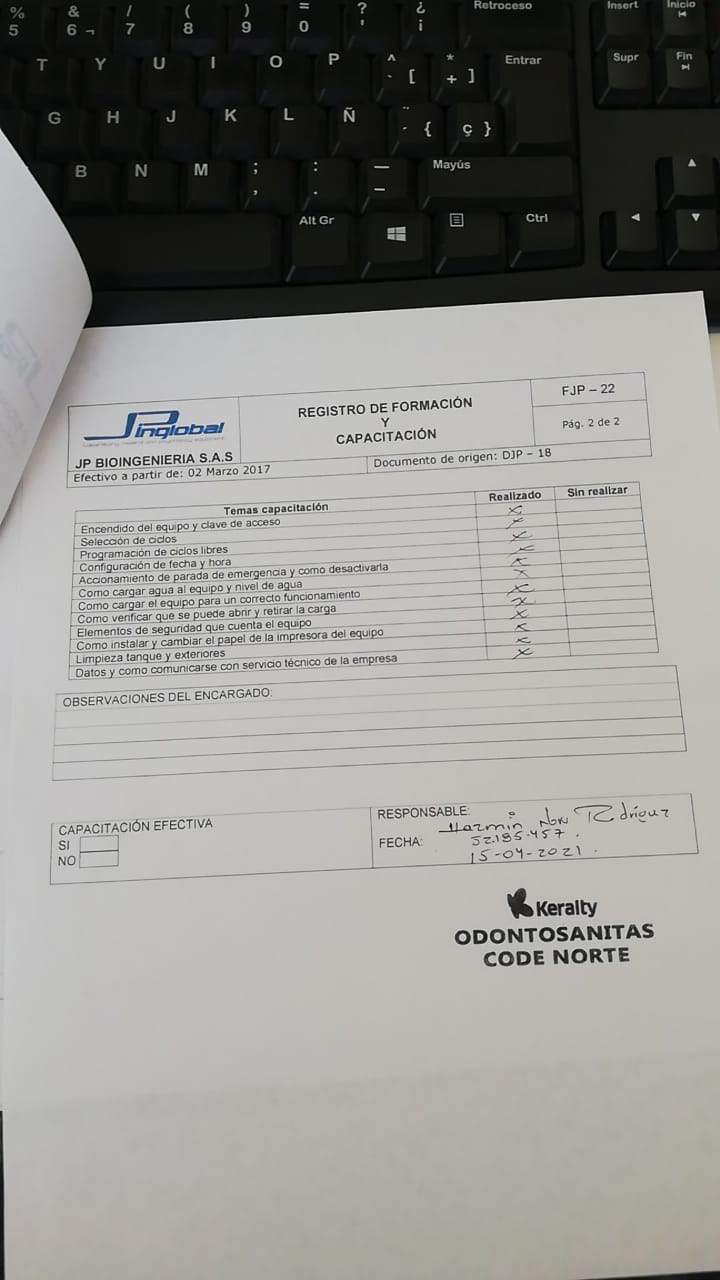 % & / ( ) = ? ¿ Retroceso Insert Inicio
5 6 ¬ 7 8 9 0 ' ¡
T Y U I O P ^ ` [ * + ] Entrar Supr Fin
G H J K L Ñ ¨ ´ { ç }
B N M ; , : . — – Mayús
Alt Gr Ctrl
JPinglobal
JP BIOINGENIERIA S.A.S
REGISTRO DE FORMACIÓN
Y
CAPACITACIÓN
FJP – 22
Pág. 2 de 2
Efectivo a partir de: 02 Marzo 2017
Documento de origen: DJP – 18
Temas capacitación Realizado Sin realizar
Encendido del equipo y clave de acceso X
Selección de ciclos X
Programación de ciclos libres X
Configuración de fecha y hora X
Accionamiento de parada de emergencia y como desactivarla X
Como cargar agua al equipo y nivel de agua X
Como cargar el equipo para un correcto funcionamiento X
Como verificar que se puede abrir y retirar la carga X
Elementos de seguridad que cuenta el equipo X
Como instalar y cambiar el papel de la impresora del equipo X
Limpieza tanque y exteriores X
Datos y como comunicarse con servicio técnico de la empresa X
OBSERVACIONES DEL ENCARGADO:
CAPACITACIÓN EFECTIVA
SI
NO
RESPONSABLE:
52.185.457.
FECHA: 15-04-2021.
Keralty
ODONTOSANITAS
CODE NORTE